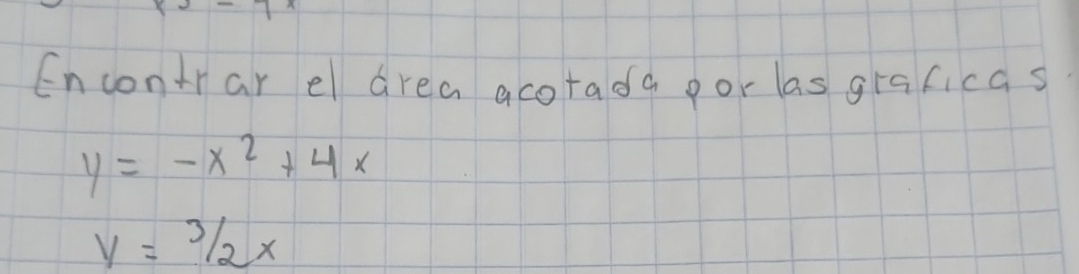 Encontrar el área acotada por las graficas.
y = -x² + 4x
y = 3/2x